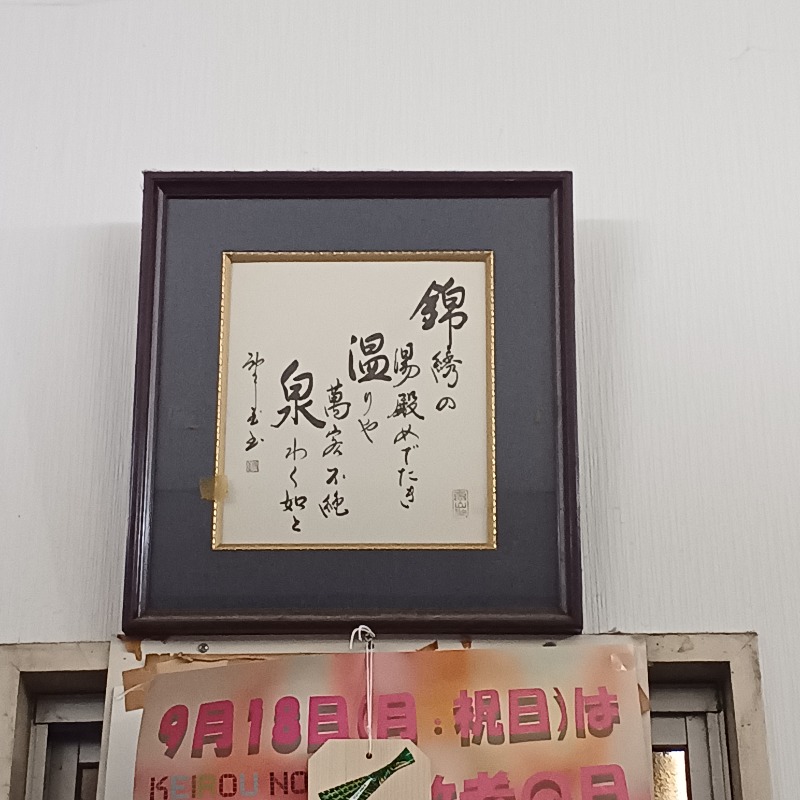 錦綉の
湯殿めでたき
温りや
萬客不絶
泉わく如と
9月18日(月:祝日)は
KEIROU NO